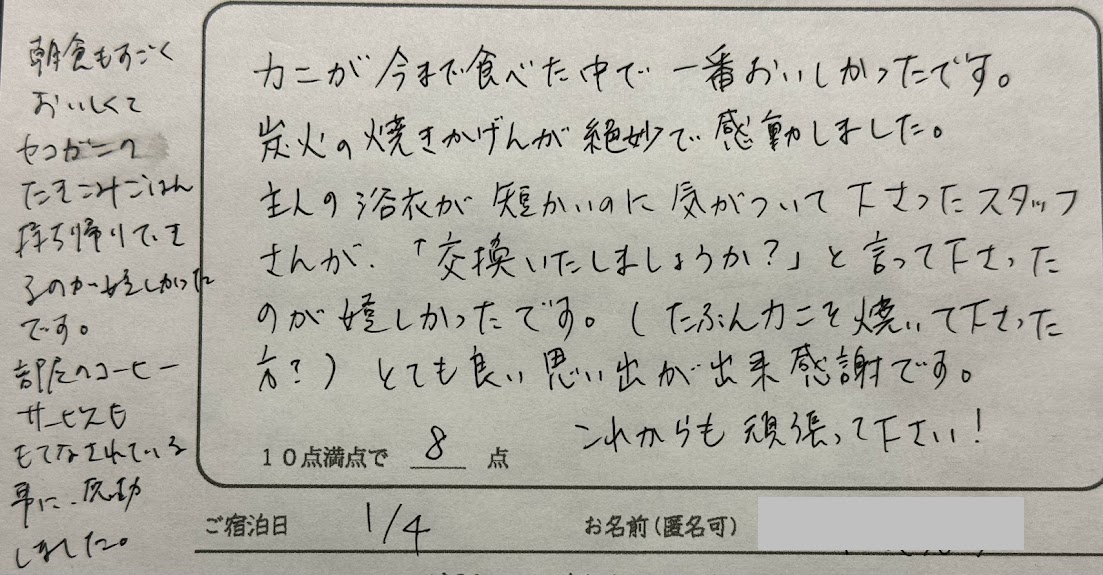 カニが今まで食べた中で一番おいしかったです。
炭火の焼きかげんが絶妙で感動しました。
主人の浴衣が短かいのに気がついて下さったスタッフ
さんが、「交換いたしましょうか?」と言って下さった
のが嬉しかったです。(たぶんカニを焼いて下さった
方?)とても良い思い出が出来感謝です。
これからも頑張って下さい!
10点満点で 8 点
ご宿泊日 1/4 お名前(匿名可)
朝食もすごく
おいしくて
セコガニの
たきこみごはん
持ち帰りでき
るのが嬉しかった
です。
部屋のコーヒー
サービスも
もてなされている
事に、感動
しました。